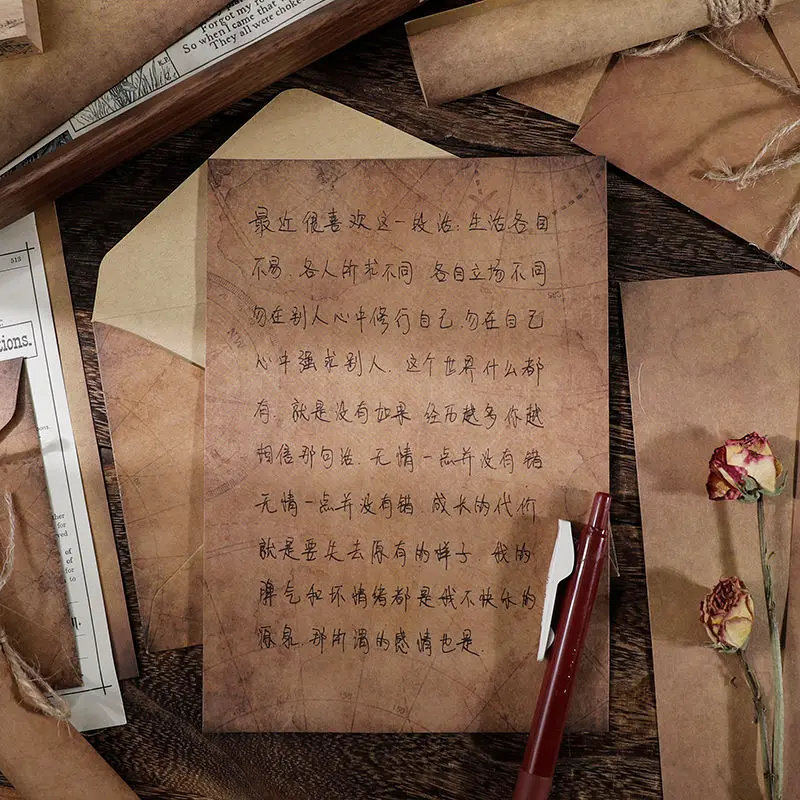 Forgot my
So when I came that
They all were choke
513
tions.
最近很喜欢这一段话:生活各自
不易.各人所求不同 各自立场不同
勿在别人心中修行自己.勿在自己
心中强求别人.这个世界什么都
有.就是没有如果 经历越多你越
相信那句话.无情一点并没有错
无情一点并没有错.成长的代价
就是要失去原有的样子 我的
脾气和坏情绪都是我不快乐的
源泉.那所谓的感情也是.